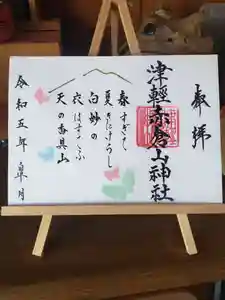 奉拝
津軽赤倉山神社
春すぎて
夏きにけらし
白妙の
衣ほすてふ
天の香具山
令和五年 皐月